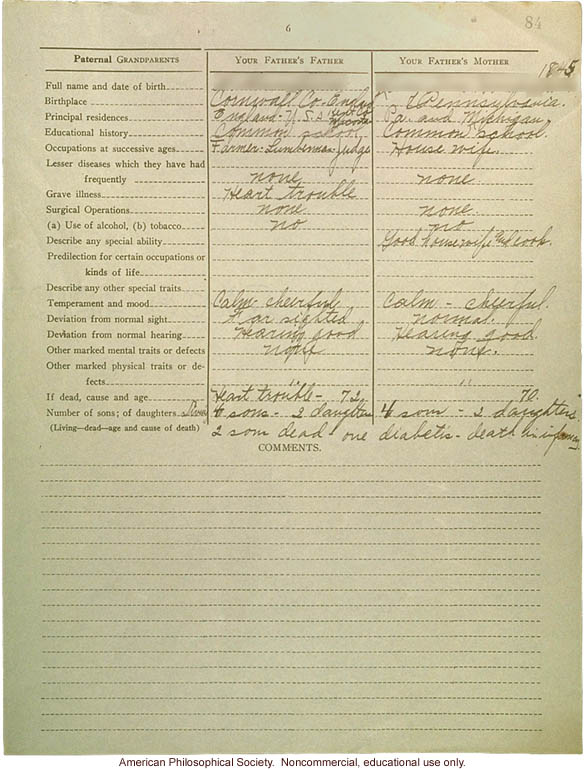 6
84
PATERNAL GRANDPARENTS YOUR FATHER'S FATHER YOUR FATHER'S MOTHER
Full name and date of birth 1845
Birthplace Cornwall Co-England Pennsylvania.
Principal residences England-U.S.A Pa. and Michigan
Educational history Common school Common school.
Occupations at successive ages Farmer-Lumberman-Judge House wife.
Lesser diseases which they have had
frequently none none
Grave illness Heart trouble
Surgical Operations none none
(a) Use of alcohol, (b) tobacco no no
Describe any special ability Good housewife and cook.
Predilection for certain occupations or
kinds of life
Describe any other special traits
Temperament and mood Calm-cheerful Calm - cheerful.
Deviation from normal sight Far sighted normal.
Deviation from normal hearing Hearing good Hearing good
Other marked mental traits or defects none none.
Other marked physical traits or de-
fects " "
If dead, cause and age Heart trouble - 72 70.
Number of sons; of daughters 4 sons - 2 daughters 4 sons - 2 daughters.
(Living—dead—age and cause of death) 2 sons dead - one diabetis - death in infancy
COMMENTS.
American Philosophical Society. Noncommercial, educational use only.